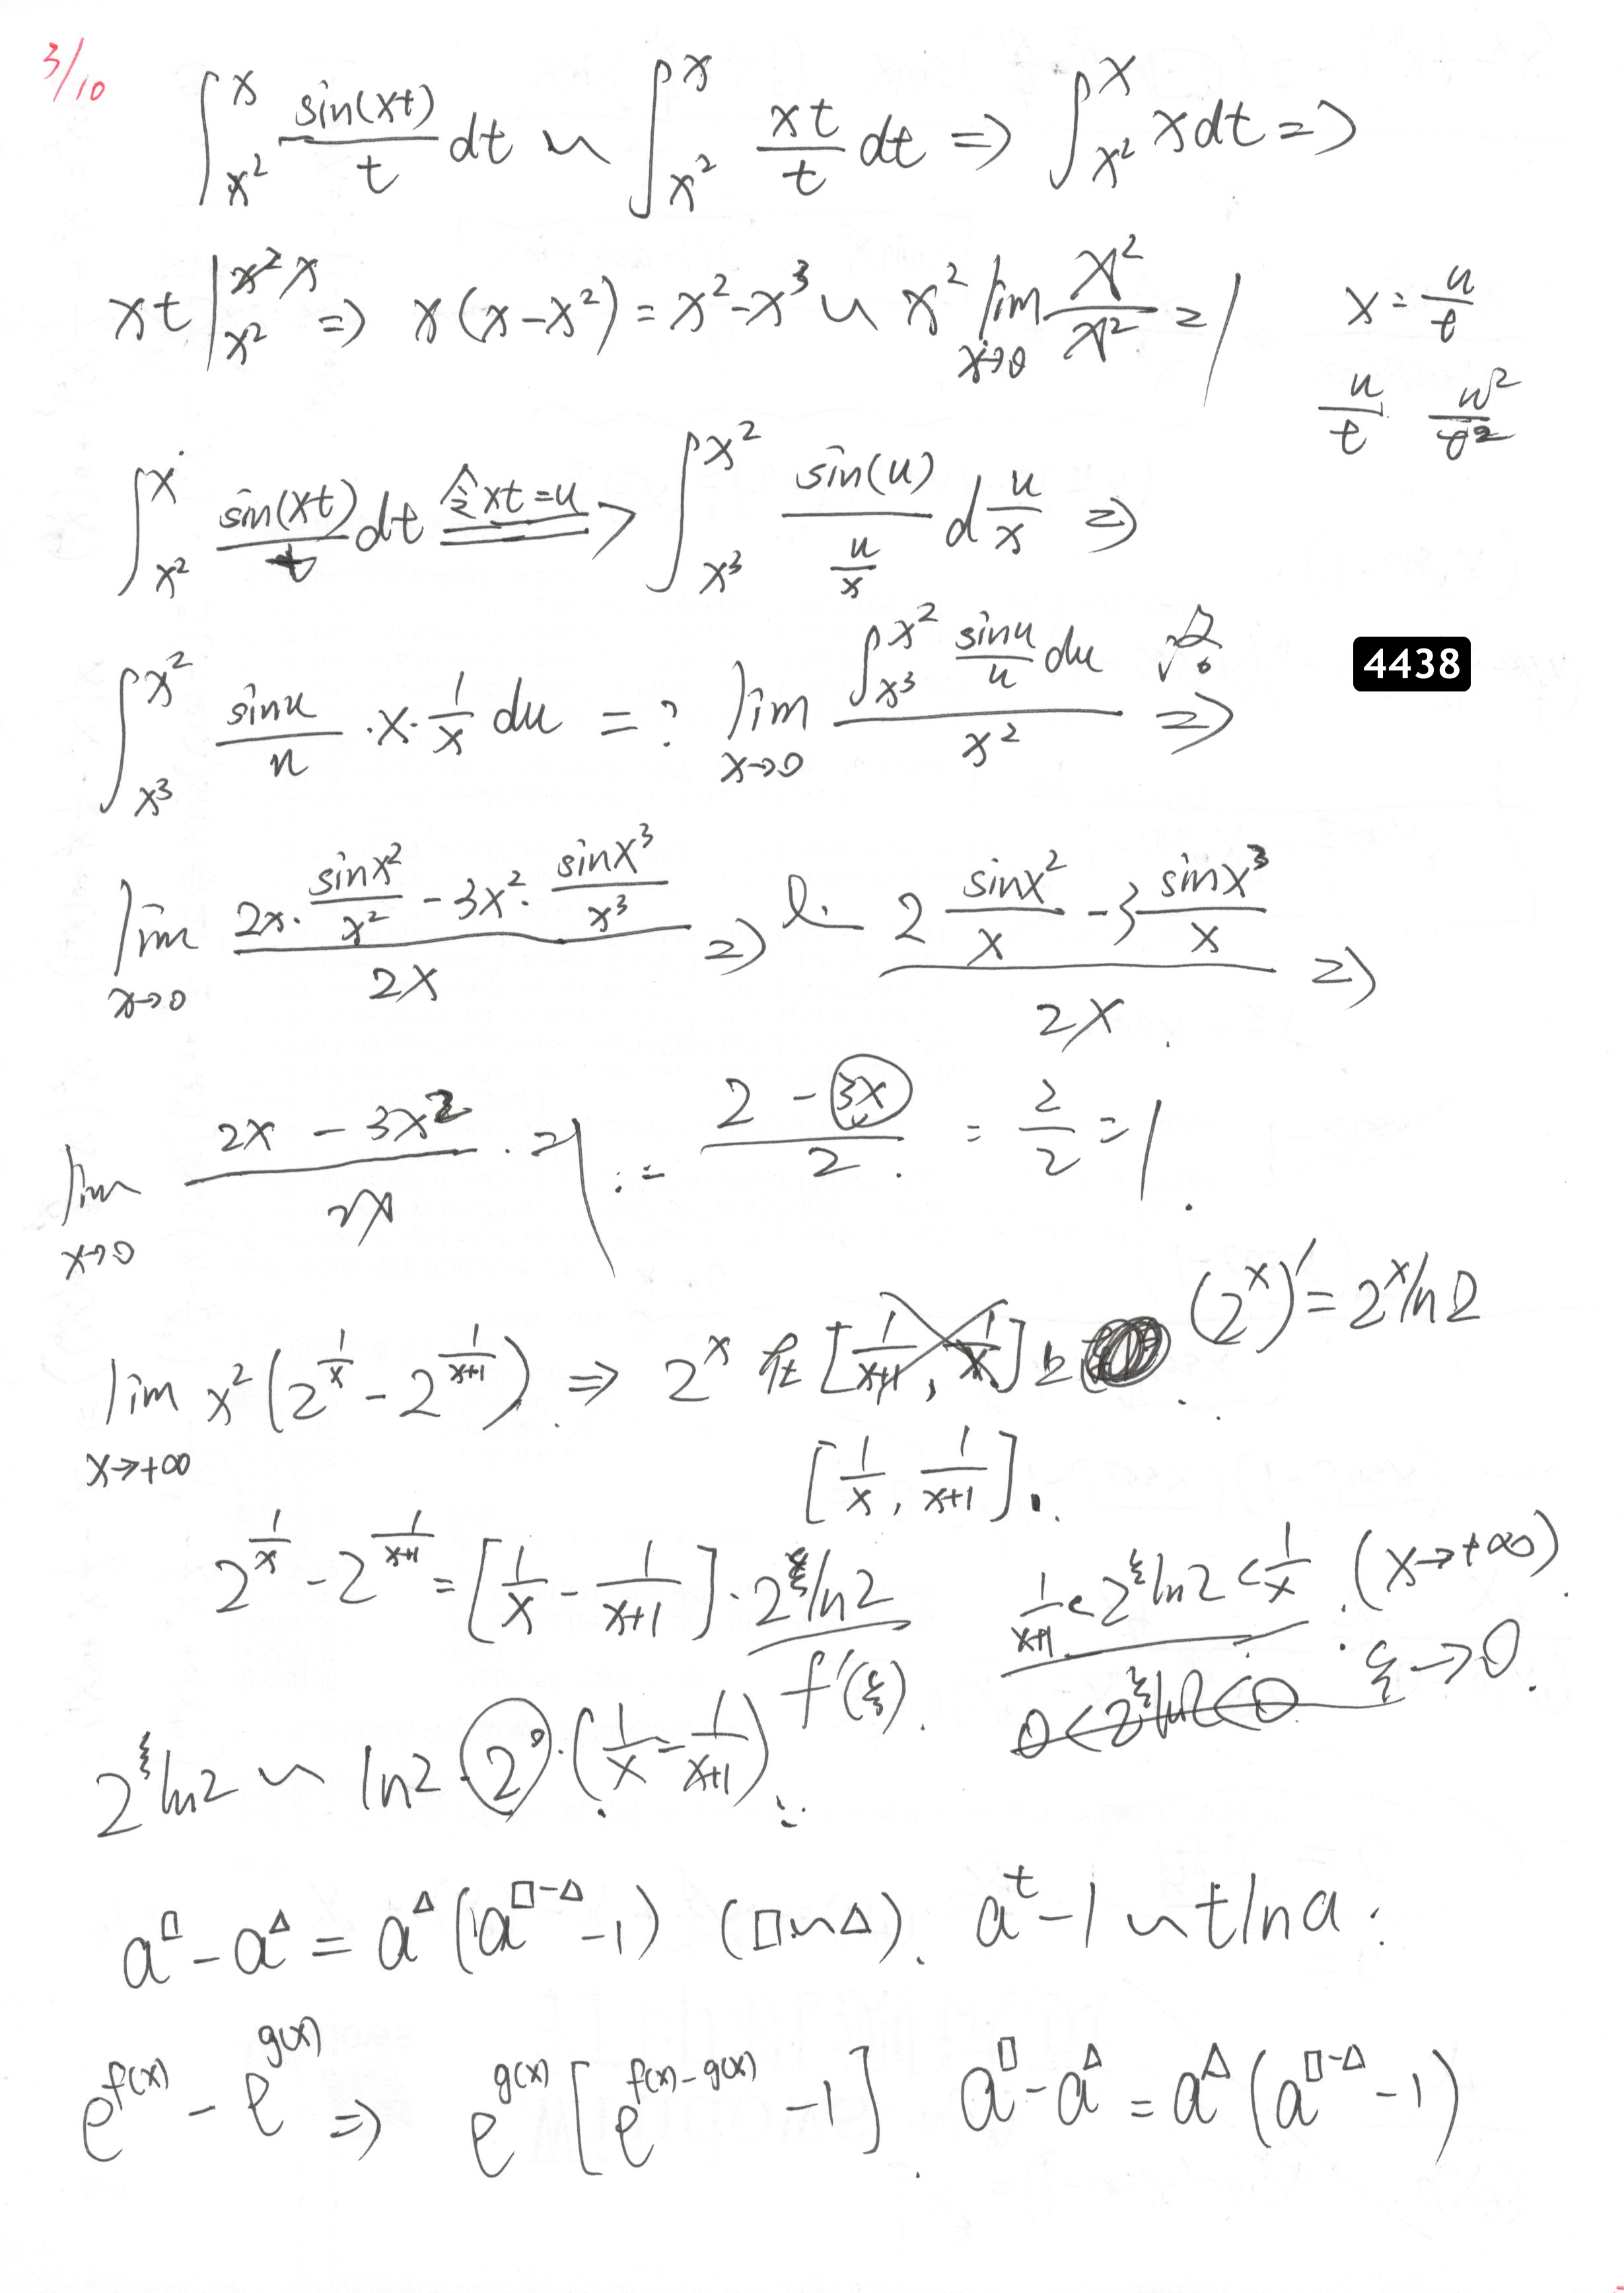 3/10
∫_{x²}^{x} sin(xt)/t dt ~ ∫_{x²}^{x} xt/t dt => ∫_{x²}^{x} x dt =>
xt |_{x²}^{x} => x(x-x²) = x²-x³ ~ x² lim_{x→0} x²/x² = 1
x = u/t
u/t u²/t²
∫_{x²}^{x} sin(xt)/t dt 令xt=u => ∫_{x³}^{x²} sin(u)/(u/x) d u/x =>
4438
∫_{x³}^{x²} sinu/u · x · 1/x du = ? lim_{x→0} (∫_{x³}^{x²} sinu/u du)/x² =>
lim_{x→0} (2x · sinx²/x² - 3x² · sinx³/x³)/2x => (2 sinx²/x - 3 sinx³/x)/2x =>
lim_{x→0} (2x - 3x²)/2x => (2 - 3x)/2 = 2/2 = 1.
(2^x)' = 2^x ln2
lim_{x→+∞} x²(2^{1/x} - 2^{1/(x+1)}) => 2^x 在
[1/x, 1/(x+1)].
2^{1/x} - 2^{1/(x+1)} = [1/x - 1/(x+1)] · 2^ξ ln2
f'(ξ).
1/(x+1) < 2^ξ ln2 < 1/x (x→+∞)
0 < 2^ξ ln2 < 0 ξ→0.
2^ξ ln2 ~ ln2 · 2^0 · (1/x - 1/(x+1))
a^□ - a^△ = a^△(a^{□-△} - 1) (□~△). a^t - 1 ~ t lna
e^{f(x)} - e^{g(x)} => e^{g(x)}[e^{f(x)-g(x)} - 1]. a^□ - a^△ = a^△(a^{□-△} - 1)